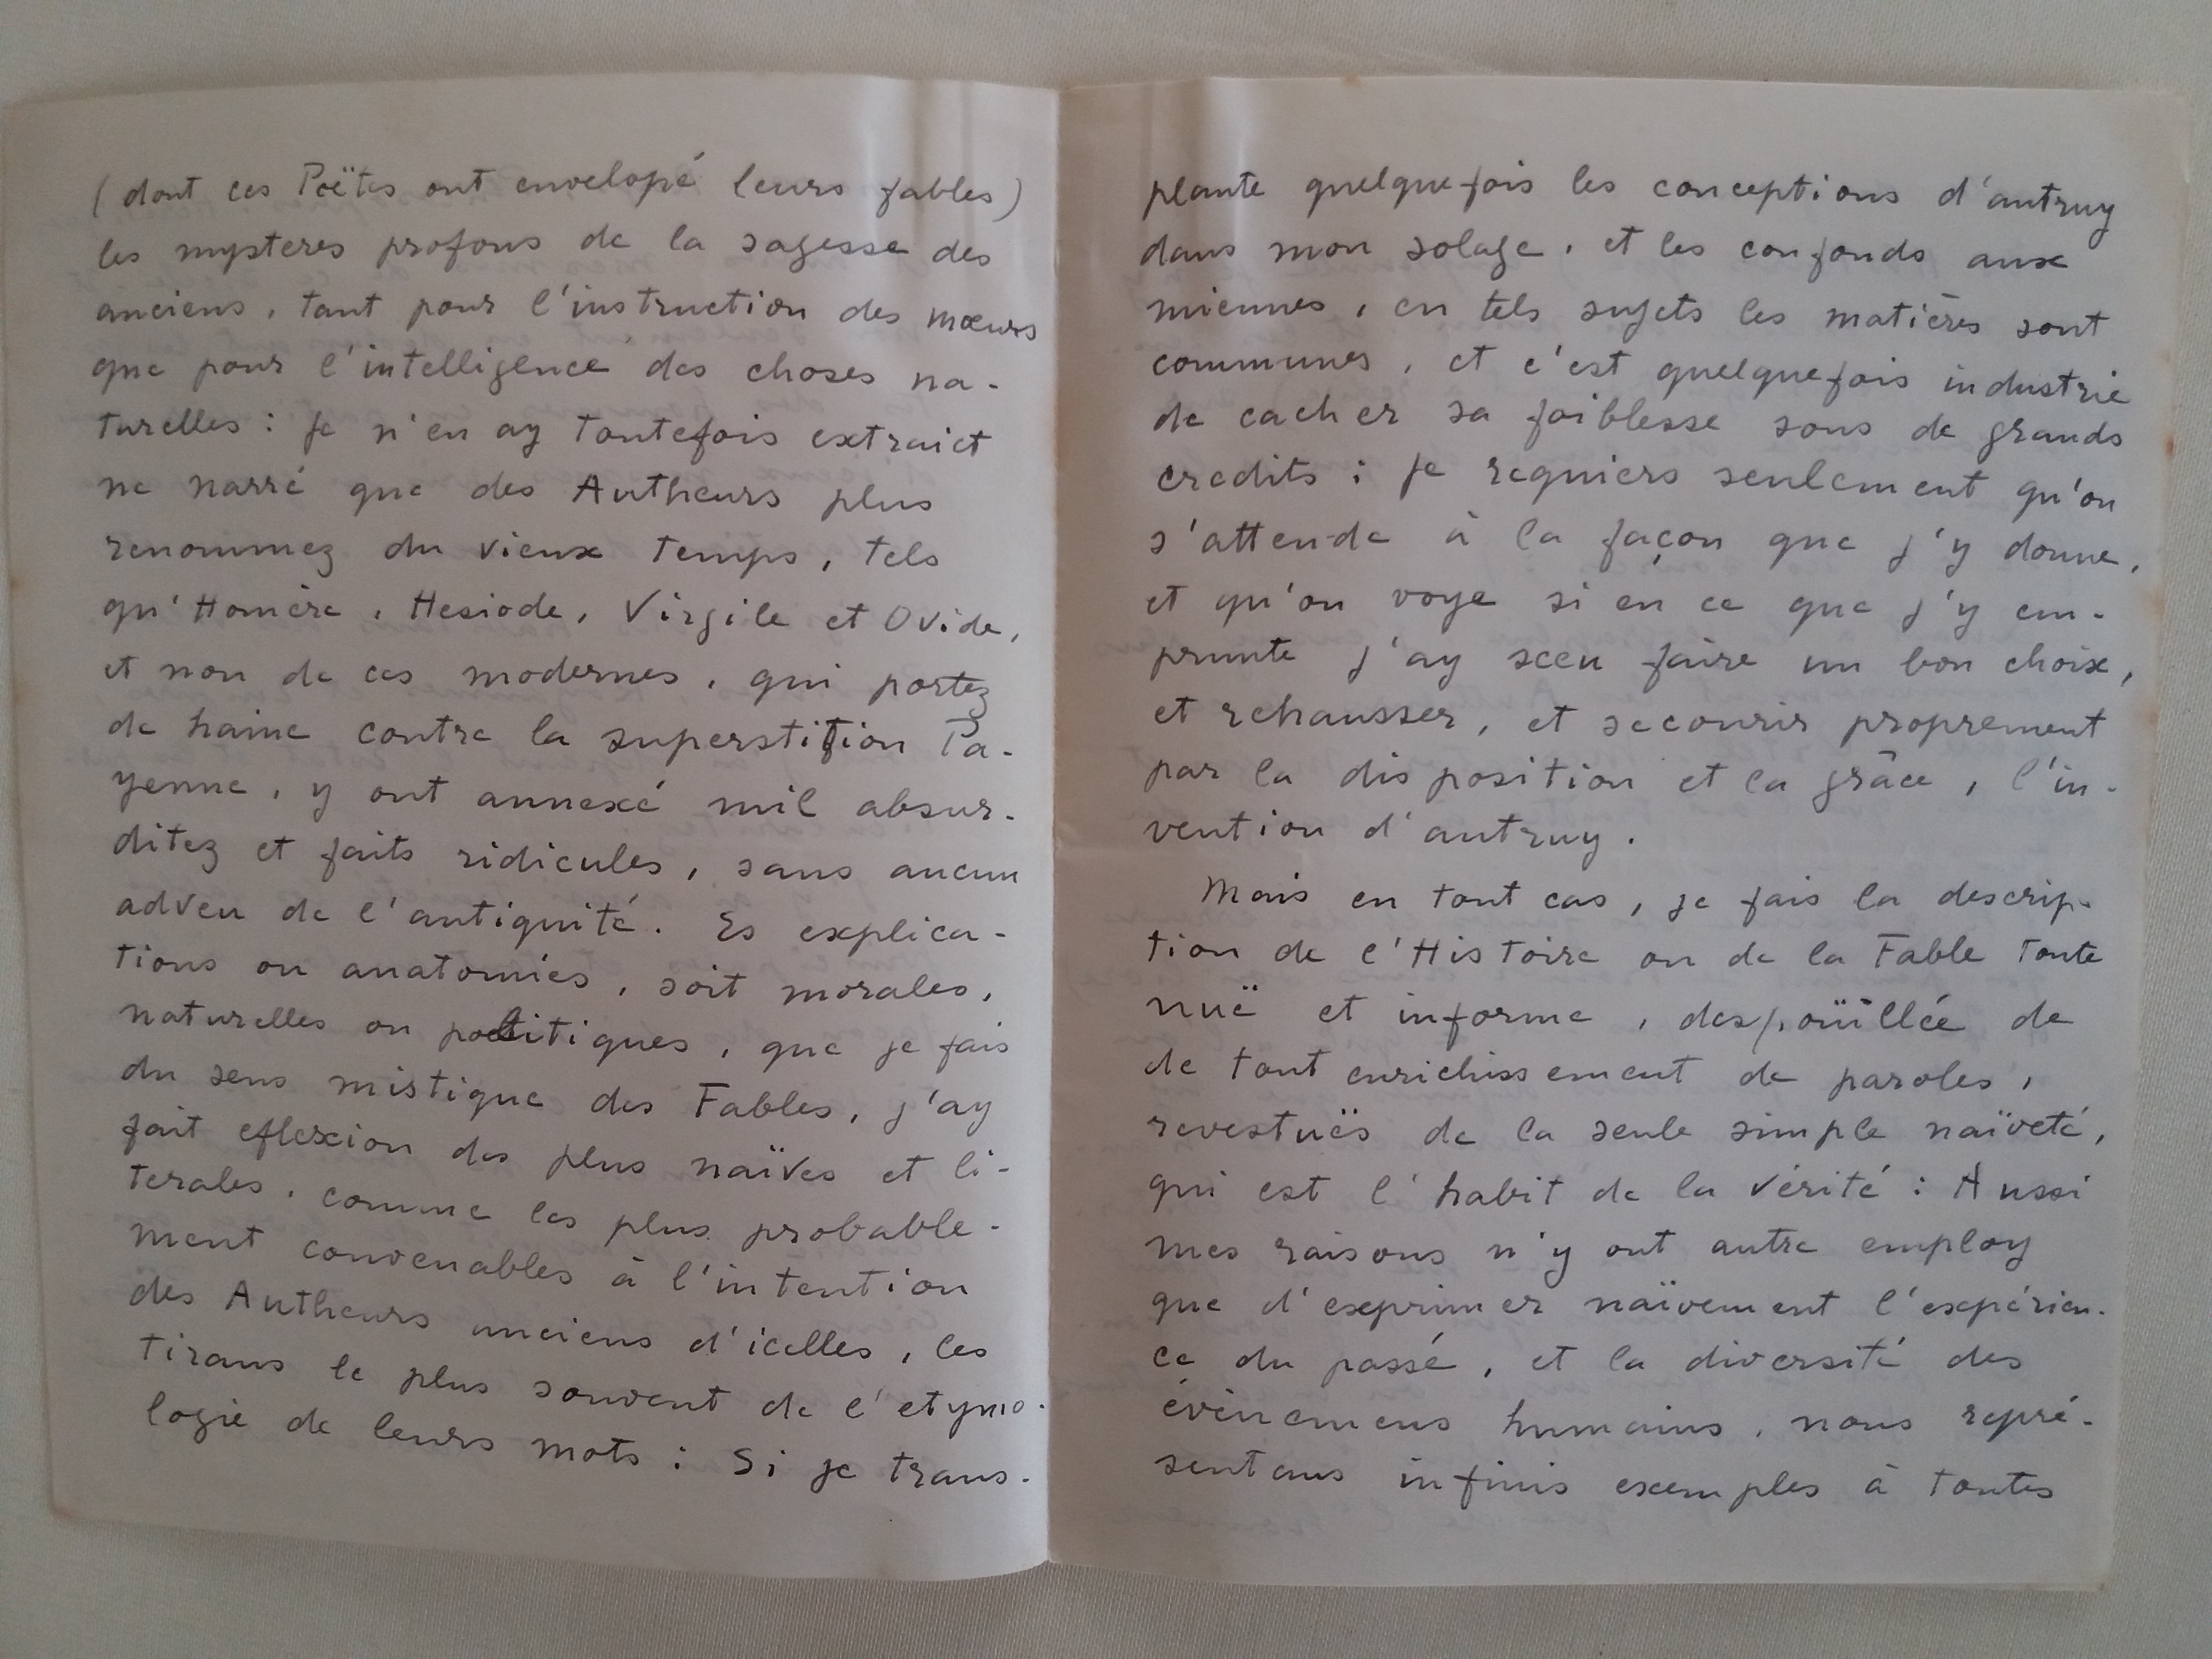 (dont ces Poëtes ont envelopé leurs fables)
les mysteres profons de la sagesse des
anciens, tant pour l'instruction des mœurs
que pour l'intelligence des choses na-
turelles : je n'en ay toutefois extraict
ne narré que des Autheurs plus
renommez du vieux temps, tels
qu'Homère, Hesiode, Virgile et Ovide,
et non de ces modernes, qui portez
de haine contre la superstition Pa-
yenne, y ont annexé mil absur-
ditez et faits ridicules, sans aucun
adveu de l'antiquité. Es explica-
tions ou anatomies, soit morales,
naturelles ou politiques, que je fais
du sens mistique des Fables, j'ay
fait eflexion des plus naïves et li-
terales, comme les plus probable-
ment convenables à l'intention
des Autheurs anciens d'icelles, les
tirans le plus souvent de l'etymo-
logie de leurs mots : Si je trans-
plante quelquefois les conceptions d'autruy
dans mon solage, et les confonds aux
miennes, en tels sujets les matières sont
communes, et c'est quelquefois industrie
de cacher sa foiblesse sous de grands
credits : je requiers seulement qu'on
s'attende à la façon que j'y donne,
et qu'on voye si en ce que j'y em-
prunte j'ay sceu faire un bon choix,
et rehausser, et secourir proprement
par la disposition et la grâce, l'in-
vention d'autruy.
Mais en tout cas, je fais la descrip-
tion de l'Histoire ou de la Fable toute
nuë et informe, despoüillée de
de tout enrichissement de paroles,
revestuës de la seule simple naïveté,
qui est l'habit de la vérité : Aussi
mes raisons n'y ont autre employ
que d'exprimer naïvement l'expérien-
ce du passé, et la diversité des
évènemens humains, nous repré-
sentans infinis exemples à toutes